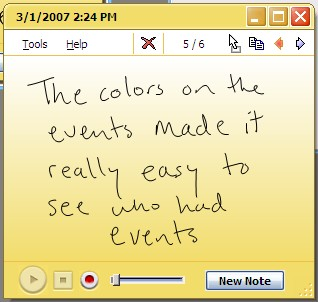 3/1/2007 2:24 PM
Tools Help 5 / 6
The colors on the
events made it
really easy to
see who had
events
New Note